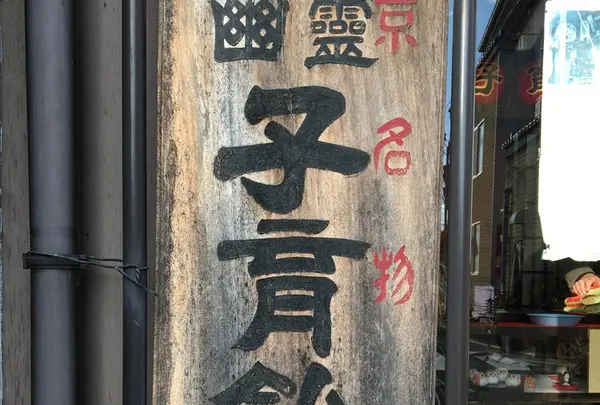 京名物
幽靈
子育飴